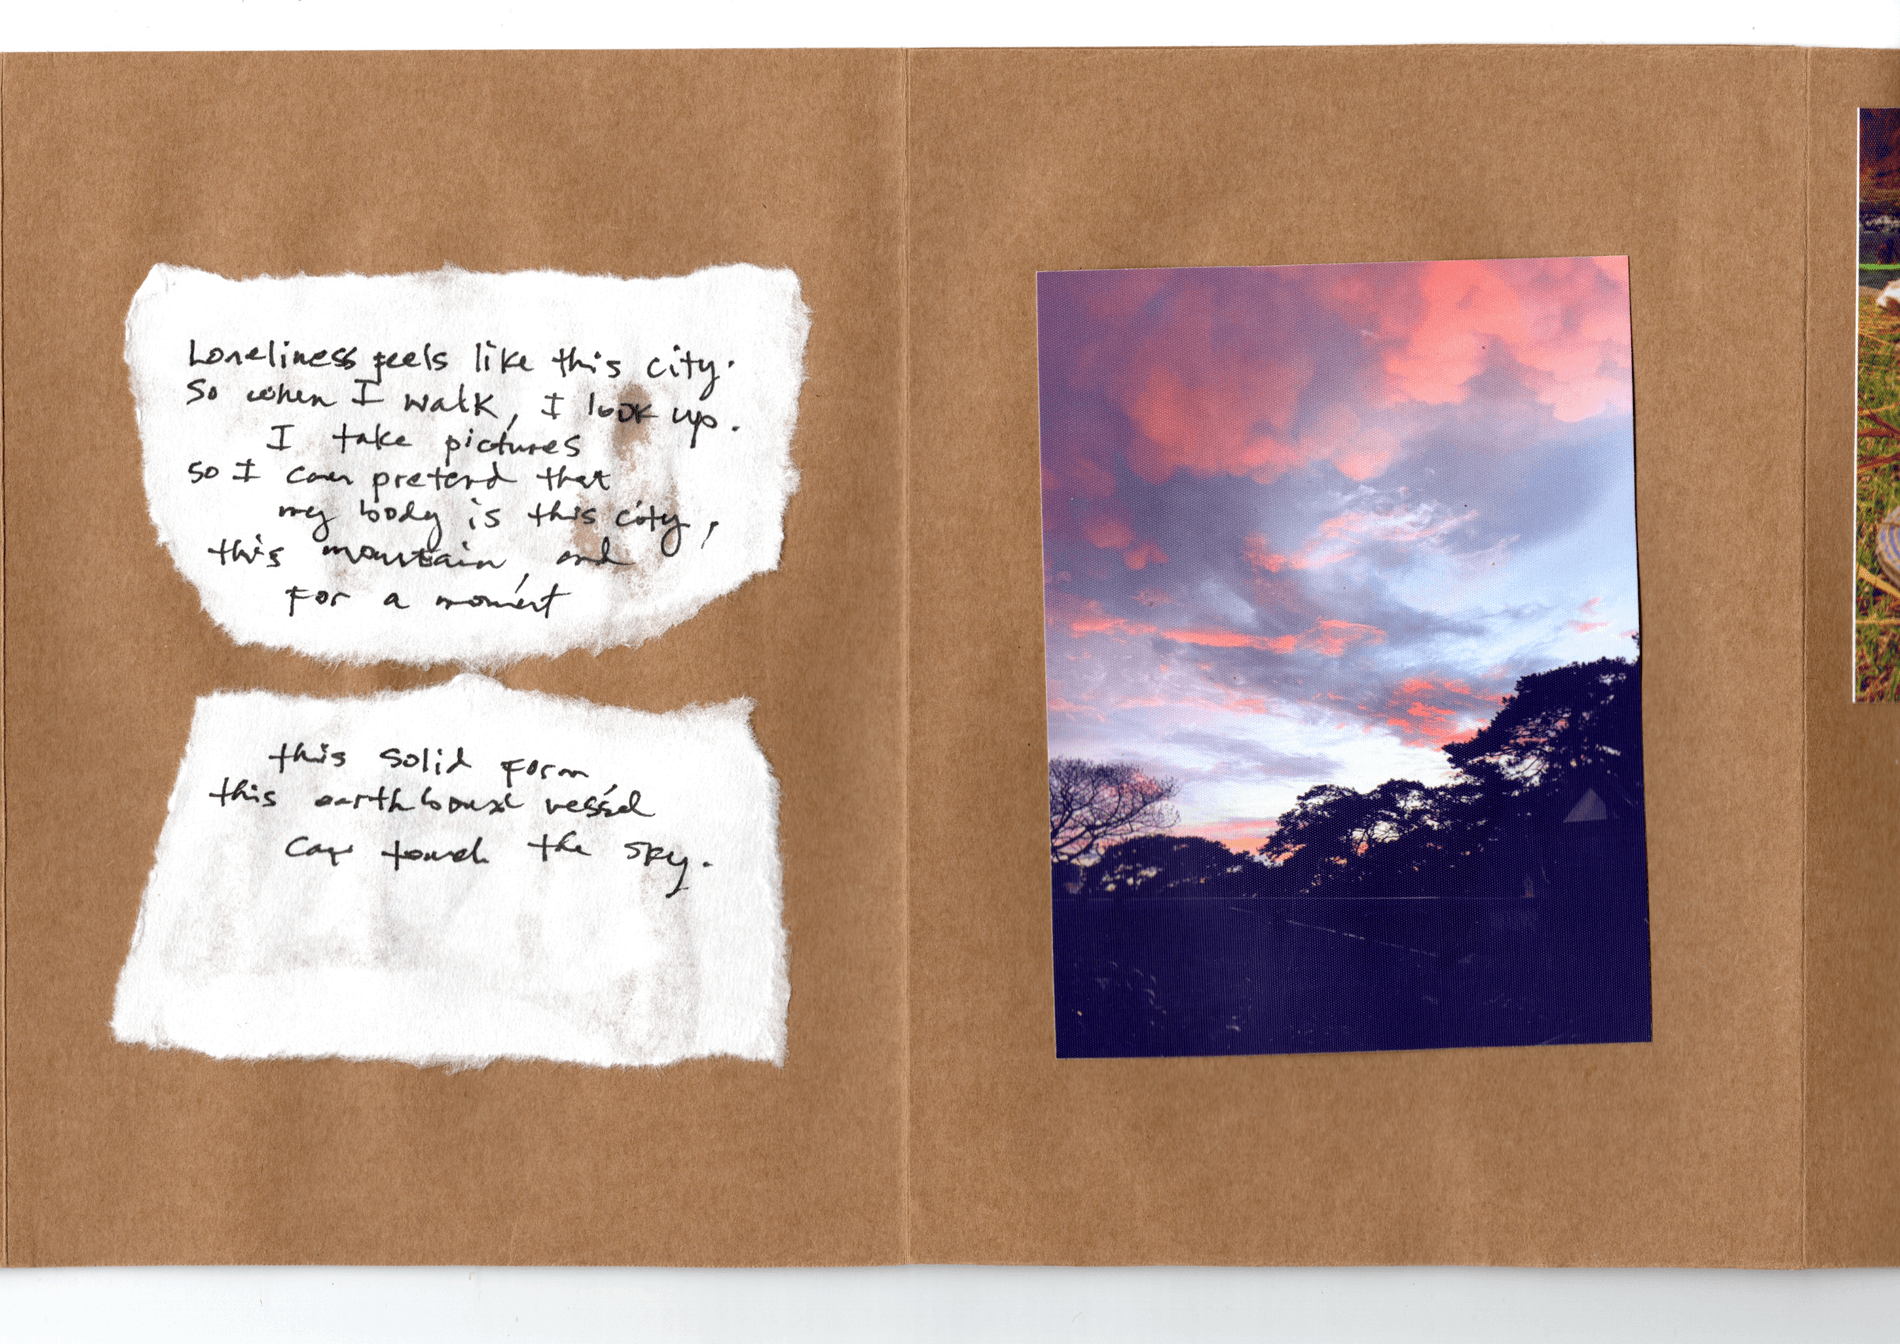 Loneliness feels like this city.
So when I walk, I look up.
I take pictures
so I can pretend that
my body is this city,
this mountain, and
for a moment
this solid form,
this earthbound vessel
can touch the sky.